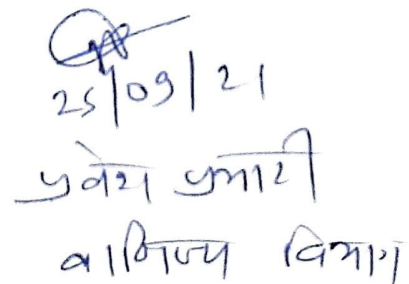 25/09/21
प्रवेश प्रभारी
वाणिज्य विभाग